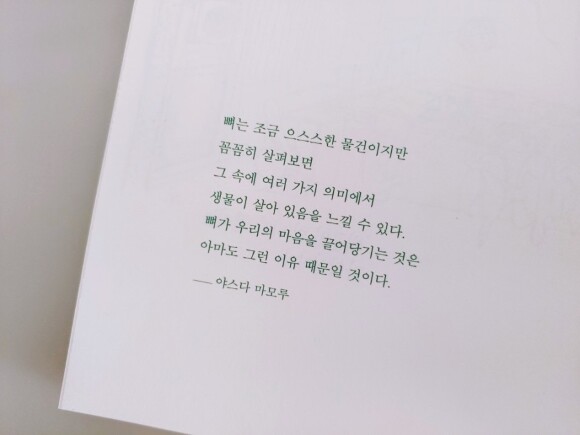 뼈는 조금 으스스한 물건이지만
꼼꼼히 살펴보면
그 속에 여러 가지 의미에서
생물이 살아 있음을 느낄 수 있다.
뼈가 우리의 마음을 끌어당기는 것은
아마도 그런 이유 때문일 것이다.
── 야스다 마모루